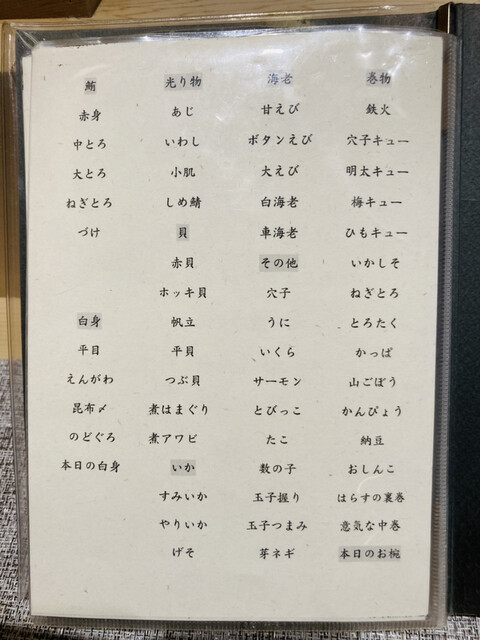 鮪
赤身
中とろ
大とろ
ねぎとろ
づけ
白身
平目
えんがわ
昆布〆
のどぐろ
本日の白身
光り物
あじ
いわし
小肌
しめ鯖
貝
赤貝
ホッキ貝
帆立
平貝
つぶ貝
煮はまぐり
煮アワビ
いか
すみいか
やりいか
げそ
海老
甘えび
ボタンえび
大えび
白海老
車海老
その他
穴子
うに
いくら
サーモン
とびっこ
たこ
数の子
玉子握り
玉子つまみ
芽ネギ
巻物
鉄火
穴子キュー
明太キュー
梅キュー
ひもキュー
いかしそ
ねぎとろ
とろたく
かっぱ
山ごぼう
かんぴょう
納豆
おしんこ
はらすの裏巻
意気な中巻
本日のお椀